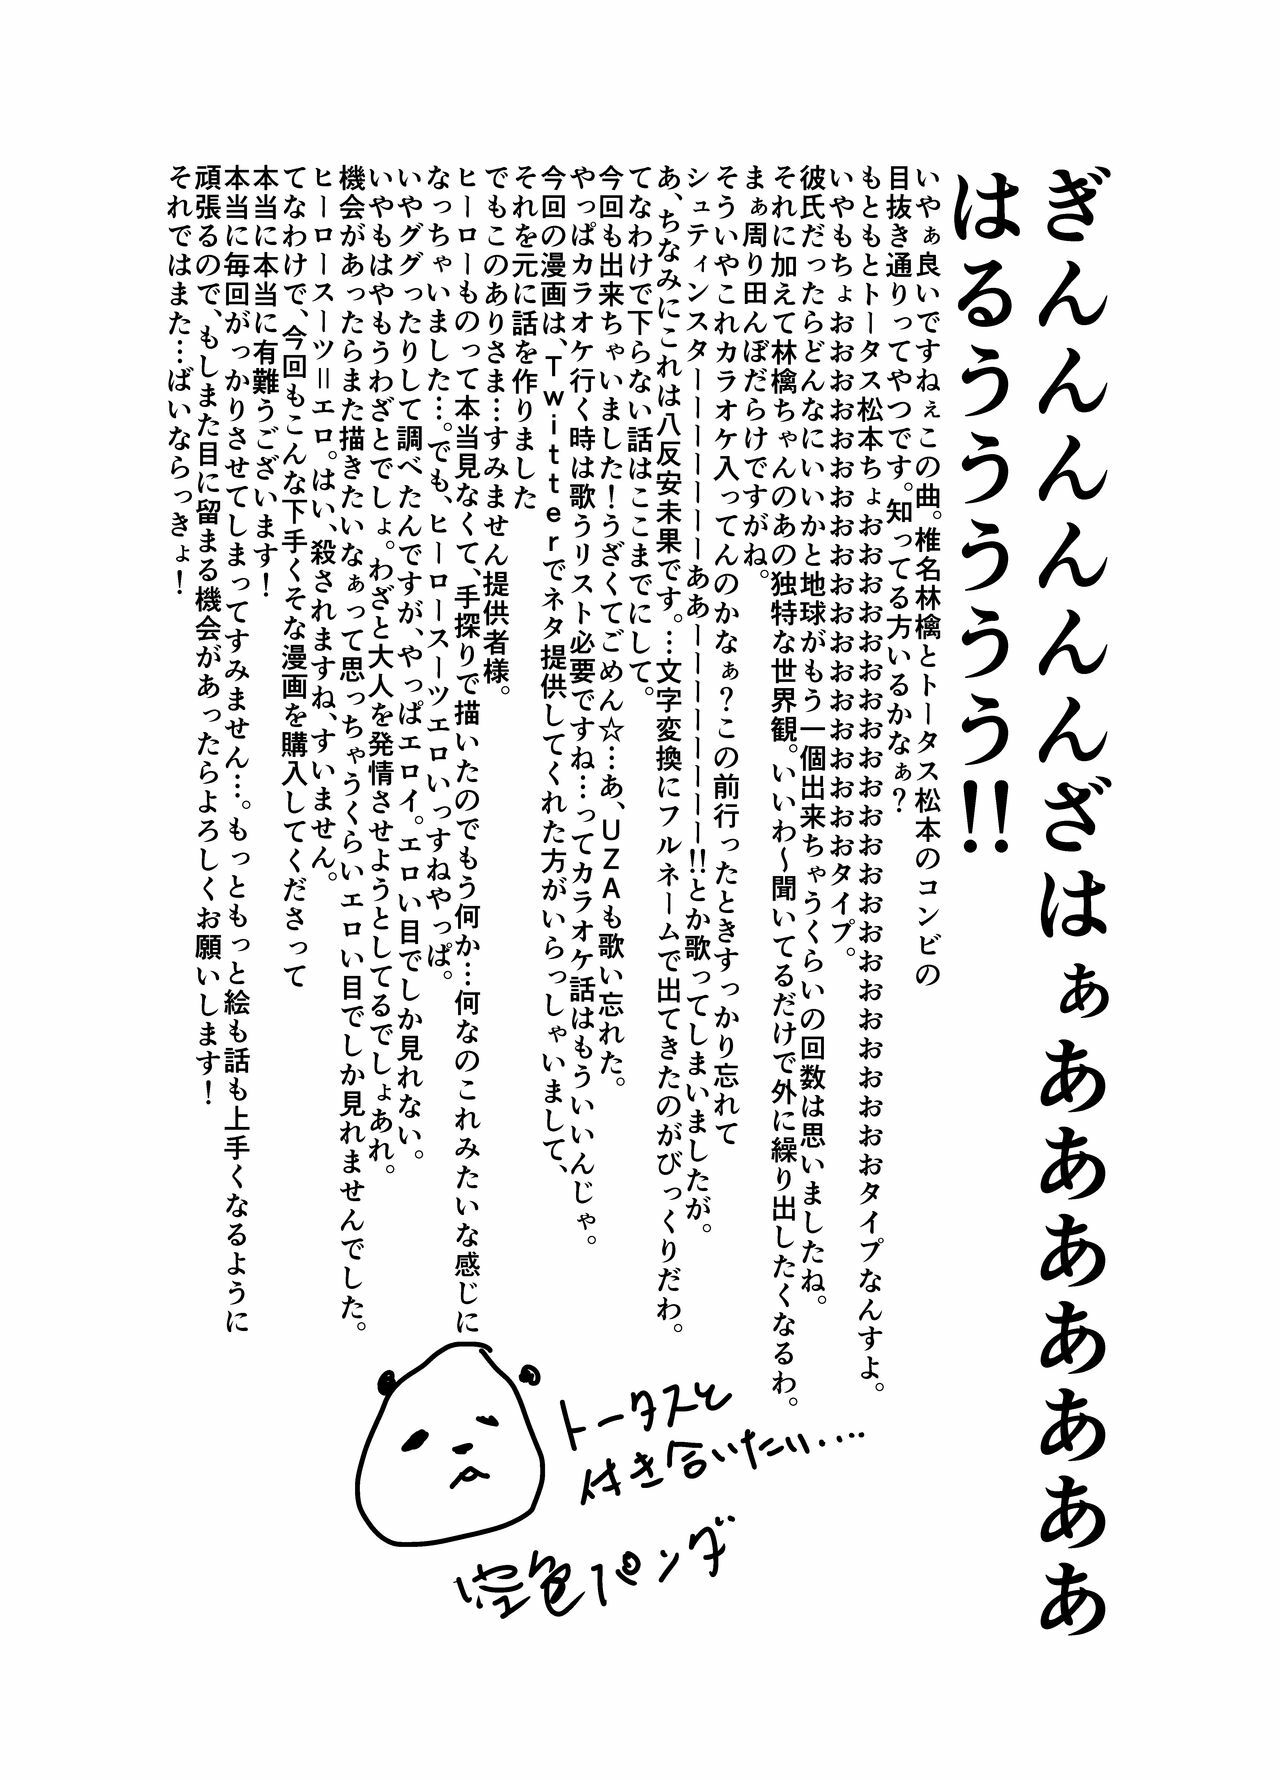 ぎんんんんんんざはぁああああああああ
はるううううう!!
いやぁ良いですねぇこの曲。椎名林檎とトータス松本のコンビの
目抜き通りってやつです。知ってる方いるかなぁ？
もともとトータス松本ちょおおおおおおおおおおおおおおおおおおおおおおタイプなんすよ。
いやもちょおおおおおおおおおおおおおおおおおおタイプ。
彼氏だったらどんなにいいかと地球がもう一個出来ちゃうくらいの回数は思いましたね。
それに加えて林檎ちゃんのあの独特な世界観。いいわ～聞いてるだけで外に繰り出したくなるわ。
まぁ周り田んぼだらけですがね。
そういやこれカラオケ入ってんのかなぁ？この前行ったときすっかり忘れて
シュティンスターーーーーーーああーーーーーー!!とか歌ってしまいましたが。
あ、ちなみにこれは八反安未果です。…文字変換にフルネームで出てきたのがびっくりだわ。
てなわけで下らない話はここまでにして。
今回も出来ちゃいました！うざくてごめん☆…あ、UZAも歌い忘れた。
やっぱカラオケ行く時は歌うリスト必要ですね…ってカラオケ話はもういいんじゃ。
今回の漫画は、Twitterでネタ提供してくれた方がいらっしゃいまして、
それを元に話を作りました
でもこのありさま…すみません提供者様。
ヒーローものって本当見なくて、手探りで描いたのでもう何か…何なのこれみたいな感じに
なっちゃいました…。でも、ヒーロースーツエロいっすねやっぱ。
いやググったりして調べたんですが、やっぱエロイ。エロい目でしか見れない。
いやもはやもうわざとでしょ。わざと大人を発情させようとしてるでしょあれ。
機会があったらまた描きたいなぁって思っちゃうくらいエロい目でしか見れませんでした。
ヒーロースーツ＝エロ。はい、殺されますね、すいません。
てなわけで、今回もこんな下手くそな漫画を購入してくださって
本当に本当に有難うございます！
本当に毎回がっかりさせてしまってすみません…。もっともっと絵も話も上手くなるように
頑張るので、もしまた目に留まる機会があったらよろしくお願いします！
それではまた…ばいならっきょ！
トータスと
付き合いたい....
空色パンダ